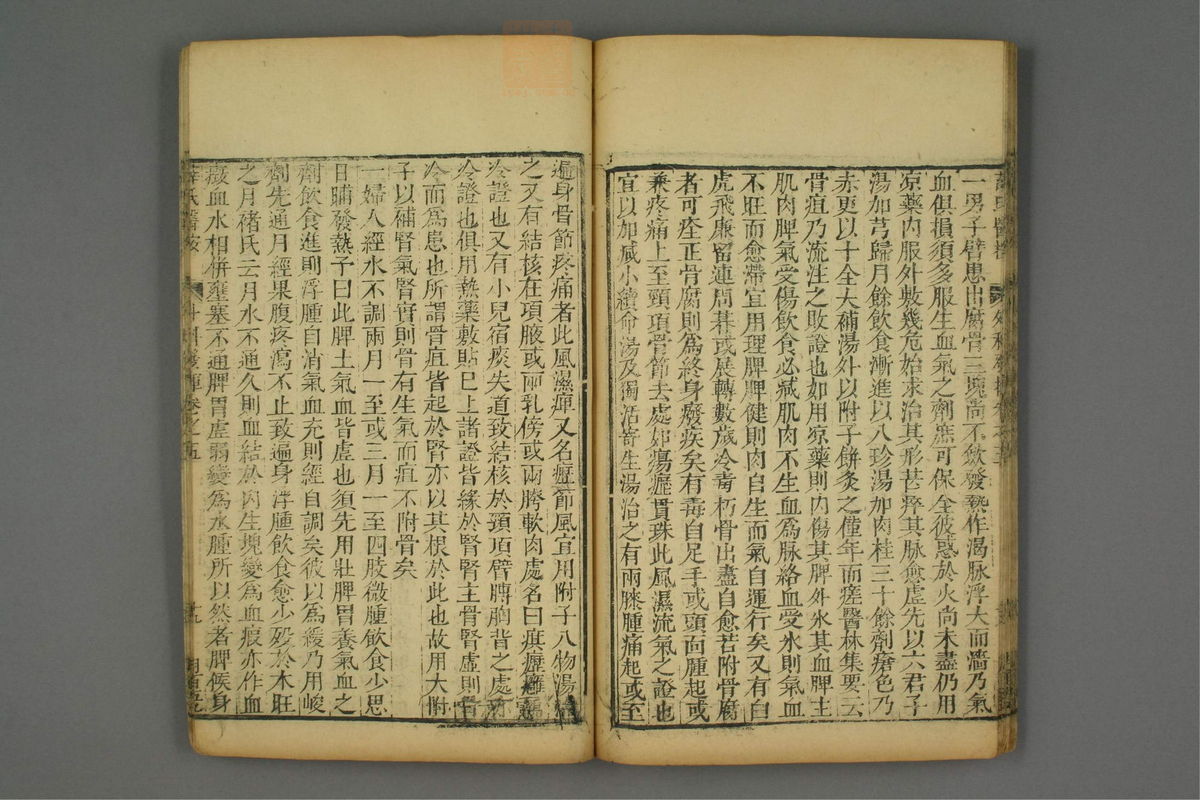 一男子臂患出腐骨三塊尚不斂發熱作渴脉浮大而濇乃氣
血俱損須多服生血氣之劑庶可保全彼惑於火尚未盡仍用
凉藥内服外敷幾危始求治其形甚瘁其脉愈虚先以六君子
湯加芎歸月餘飲食漸進以八珍湯加肉桂三十餘劑瘡色乃
赤更以十全大補湯外以附子餅灸之僅年而瘥醫林集要云
骨疽乃流注之敗證也如用凉藥則内傷其脾外氷其血脾主
肌肉脾氣受傷飲食必减肌肉不生血爲脉絡血受氷則氣血
不旺而愈滯宜用理脾脾健則肉自生而氣自運行矣又有白
虎飛廉留連周碁或展轉數歲冷毒朽骨出盡自愈若附骨腐
者可痊正骨腐則爲終身廢疾矣有毒自足手或頭面腫起或
兼疼痛上至頸項骨節去處如瘍癧貫珠此風濕流氣之證也
宜以加减小續命湯及獨活寄生湯治之有兩膝腫痛起或至
遍身骨節疼痛者此風濕痺又名癧節風宜用附子八物湯
之又有結核在項腋或兩乳傍或兩胯軟肉處名曰㾾癧癰
冷證也又有小兒宿痰失道致結核於頭頂臂膊胸背之處亦
冷證也俱用熱藥敷貼巳上諸證皆緣於腎腎主骨腎虚則骨
冷而爲患也所謂骨疽皆起於腎亦以其根於此也故用大附
子以補腎氣腎實則骨有生氣而疽不附骨矣
一婦人經水不調兩月一至或三月一至四肢微腫飲食少思
日晡發熱予曰此脾土氣血皆虚也須先用壯脾胃養氣血之
劑飲食進則浮腫自消氣血充則經自調矣彼以爲緩乃用峻
劑先通月經果腹疼瀉不止致遍身浮腫飲食愈少殁於木旺
之月褚氏云月水不通久則血結於内生塊變爲血瘕亦作血
癥血水相併壅塞不通脾胃虚弱變爲水腫所以然者脾候身
薛氏醫按 外科發揮卷之五